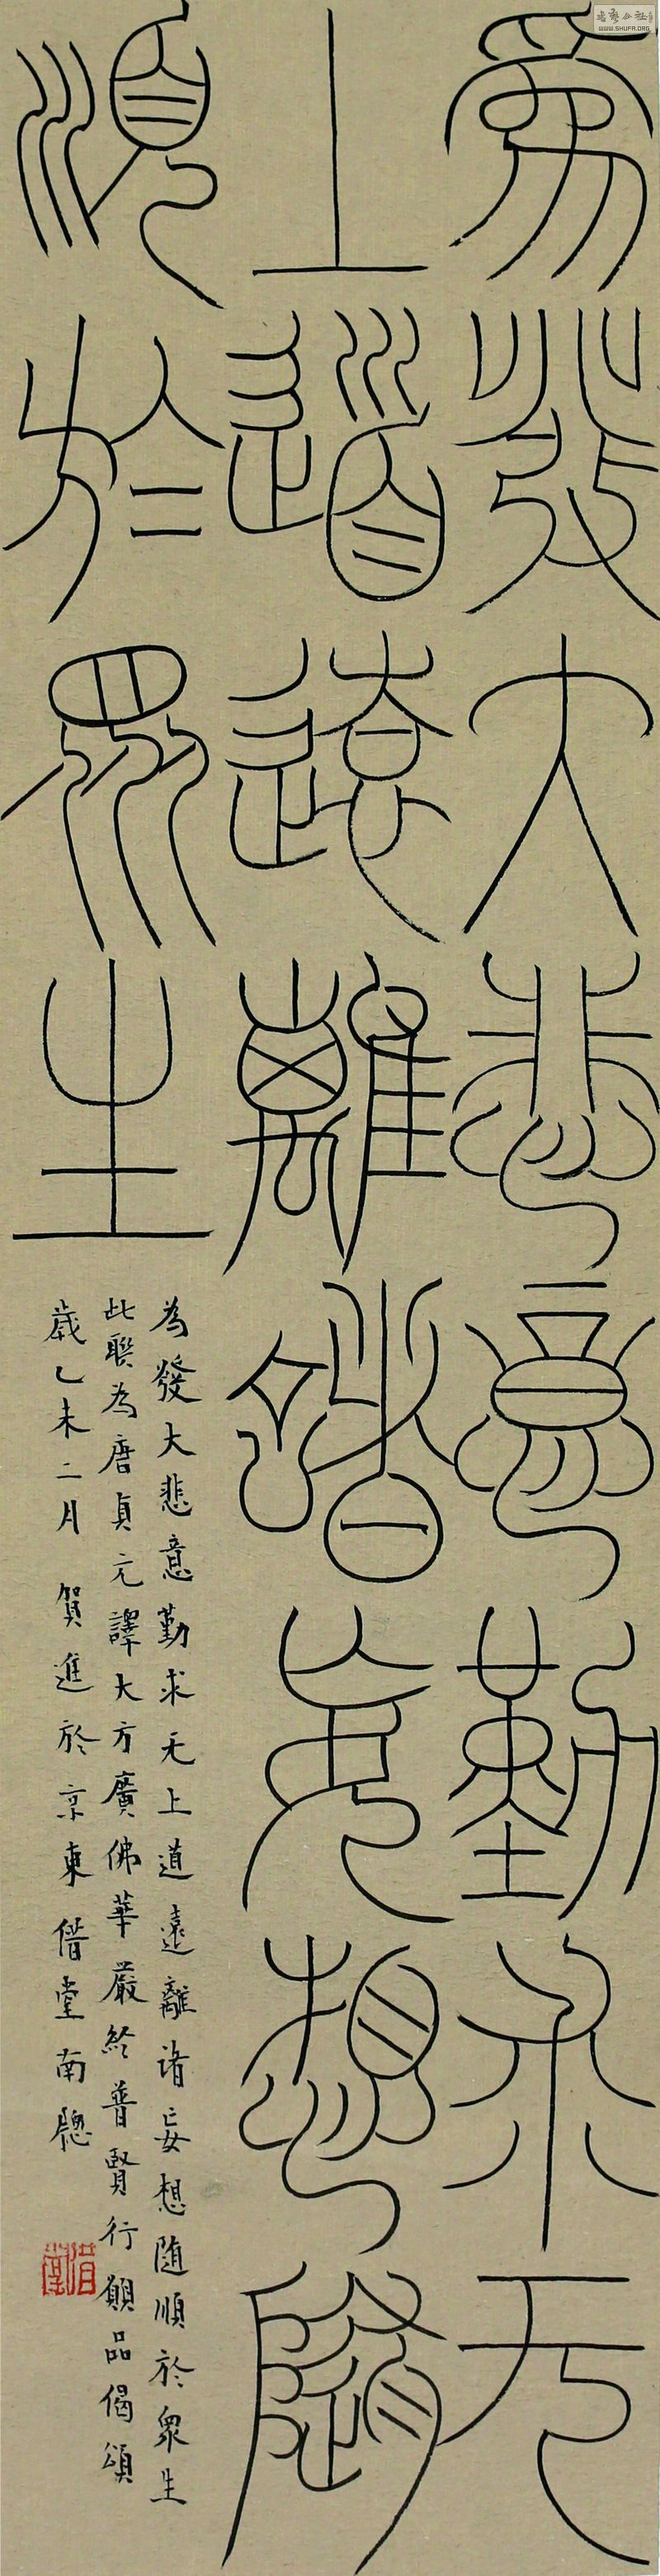 為發大悲意勤求无
上道遠離諸妄想隨
順於眾生
為發大悲意勤求无上道遠離诸妄想随順於衆生
此聯為唐貞元譯大方廣佛華嚴經普賢行願品偈頌
歲乙未二月 賀進於京東借堂南牕
借堂
WWW.SHUFA.ORG